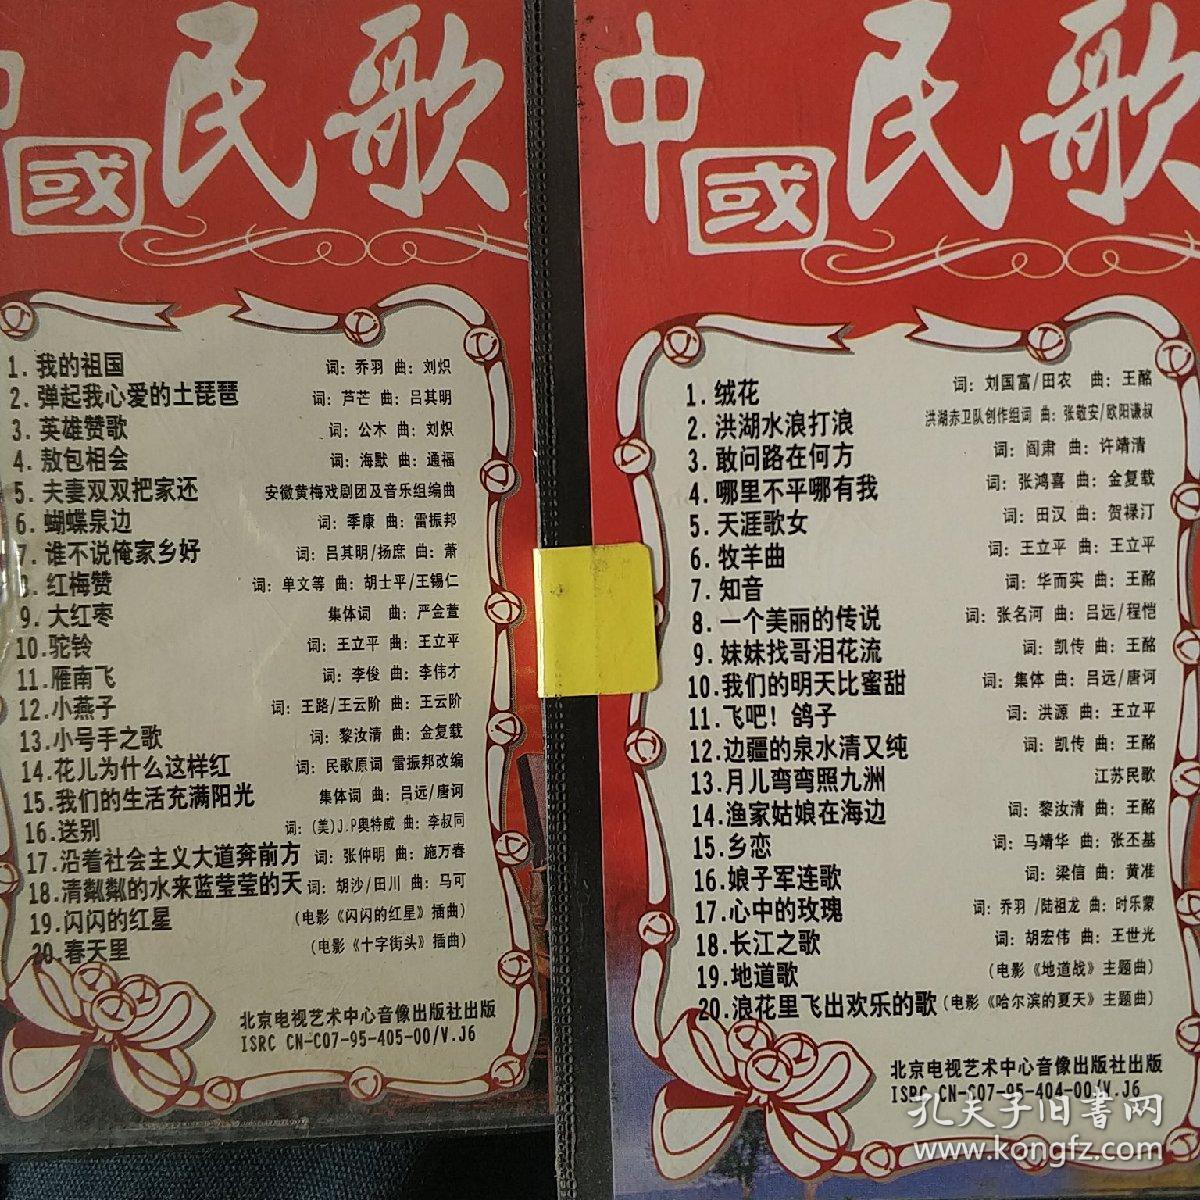 中國民歌
1. 我的祖国 词: 乔羽 曲: 刘炽
2. 弹起我心爱的土琵琶 词: 芦芒 曲: 吕其明
3. 英雄赞歌 词: 公木 曲: 刘炽
4. 敖包相会 词: 海默 曲: 通福
5. 夫妻双双把家还 安徽黄梅戏剧团及音乐组编曲
6. 蝴蝶泉边 词: 季康 曲: 雷振邦
7. 谁不说俺家乡好 词: 吕其明/扬庶 曲: 萧
8. 红梅赞 词: 单文等 曲: 胡士平/王锡仁
9. 大红枣 集体词 曲: 严金萱
10.驼铃 词: 王立平 曲: 王立平
11.雁南飞 词: 李俊 曲: 李伟才
12.小燕子 词: 王路/王云阶 曲: 王云阶
13.小号手之歌 词: 黎汝清 曲: 金复载
14.花儿为什么这样红 词: 民歌原词 雷振邦改编
15.我们的生活充满阳光 集体词 曲: 吕远/唐诃
16.送别 词: (美)J.P奥特威 曲: 李叔同
17.沿着社会主义大道奔前方 词: 张仲明 曲: 施万春
18.清粼粼的水来蓝莹莹的天 词: 胡沙/田川 曲: 马可
19.闪闪的红星 (电影《闪闪的红星》插曲)
20.春天里 (电影《十字街头》插曲)
北京电视艺术中心音像出版社出版
ISRC CN-C07-95-405-00/V.J6
中國民歌
1. 绒花 词: 刘国富/田农 曲: 王酩
2. 洪湖水浪打浪 洪湖赤卫队创作组词 曲: 张敬安/欧阳谦叔
3. 敢问路在何方 词: 阎肃 曲: 许靖清
4. 哪里不平哪有我 词: 张鸿喜 曲: 金复载
5. 天涯歌女 词: 田汉 曲: 贺禄汀
6. 牧羊曲 词: 王立平 曲: 王立平
7. 知音 词: 华而实 曲: 王酩
8. 一个美丽的传说 词: 张名河 曲: 吕远/程恺
9. 妹妹找哥泪花流 词: 凯传 曲: 王酩
10.我们的明天比蜜甜 词: 集体 曲: 吕远/唐诃
11.飞吧！鸽子 词: 洪源 曲: 王立平
12.边疆的泉水清又纯 词: 凯传 曲: 王酩
13.月儿弯弯照九洲 江苏民歌
14.渔家姑娘在海边 词: 黎汝清 曲: 王酩
15.乡恋 词: 马靖华 曲: 张丕基
16.娘子军连歌 词: 梁信 曲: 黄准
17.心中的玫瑰 词: 乔羽 /陆祖龙 曲: 时乐蒙
18.长江之歌 词: 胡宏伟 曲: 王世光
19.地道歌 (电影《地道战》主题曲)
20.浪花里飞出欢乐的歌 (电影《哈尔滨的夏天》主题曲)
北京电视艺术中心音像出版社出版
ISRC CN-C07-95-404-00/V.J6
孔夫子旧書网
www.kongfz.com